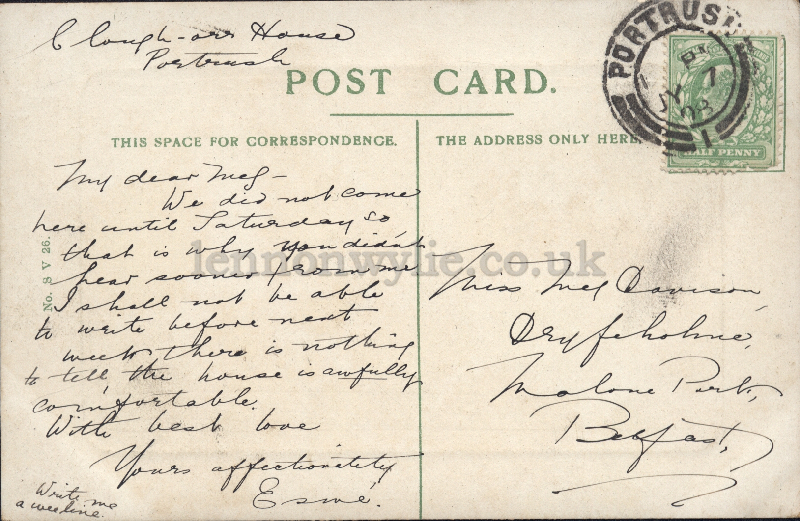 Clough-orr House
Portrush
POST CARD.
THIS SPACE FOR CORRESPONDENCE.
THE ADDRESS ONLY HERE.
PORTRUSH
1
HALF PENNY
My dear Meg –
We did not come
here until Saturday so
that is why you didn't
hear sooner from me
I shall not be able
to write before next
week there is nothing
to tell, the house is awfully
comfortable.
With best love
Yours affectionately
Esmé.
Write me
a wee line.
Miss Meg Davison,
Dryfeholme,
Malone Park,
Belfast,
No. S V 26.
lennonwylie.co.uk